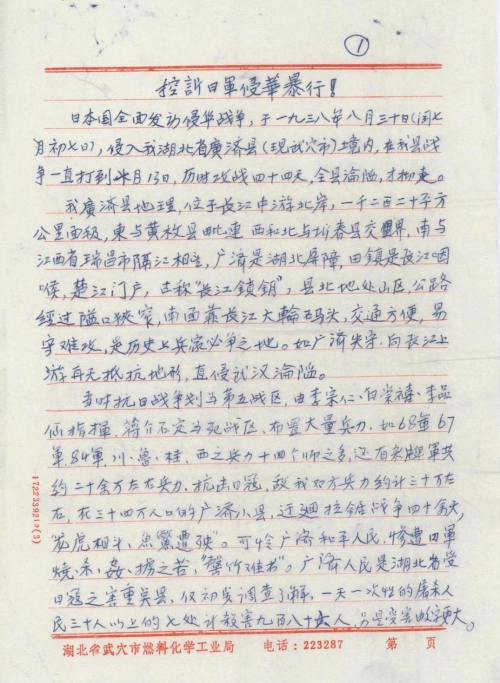 ①
控訴日軍侵華暴行！
日本国全面发动侵华战争，于一九三八年八月三十日(闰七
月初七日)，侵入我湖北省廣济县(现武穴市)境内，在我县战
争一直打到 月13日，历时攻战四十四天，全县淪陷，才 。
我廣济县地理，位于長江中游北岸，一千二百二十平方
公里面积，東与黄梅县毗連 西和北与圻春县交界，南与
江西省瑞昌市隔江相望，广济是湖北屏障，田镇是長江咽
喉，楚江门户，古称"長江锁鈅"，县北地处山区，公路
經过隘口狭窄，南西靠長江大輪码头，交通方便，易
守难攻，是历史上兵家必争之地。如广济失守，向長江上
游再无抵抗地形，直侵武汉淪陷。
当时抗日战争划为第五战区，由李宗仁、白崇禧、李品
仙指揮，蒋介石定为死战区、布置大量兵力，如68軍67
軍84軍，川、魯、桂、西之兵力十四个师之多，还有 軍共
约二十余万左右兵力，抗击日冦，敌我双方兵力约计三十万左
右，在三十四万人口的广济小县，迂迴拉锯战争四十余天
"龙虎相斗，魚鱉遭殃"。可怜广济和平人民，惨遭日軍
燒、杀、姦、掳之苦，"罄竹难书"。广济人民是湖北省受
日冦之害重 县，仅初步调查了解，一天一次性的屠杀人
民三十人以上的七处计殺害九百八十六人，
湖北省武穴市燃料化学工业局 电话：223287 第 页
1722339212(3)